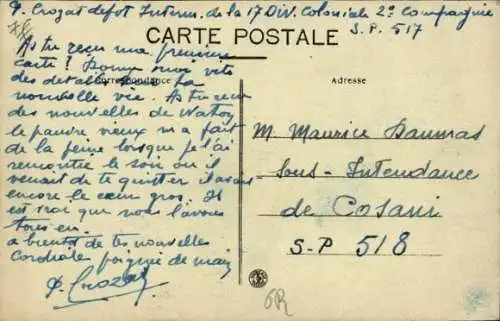 P. Crozat depot Interm. de la 17 Div. Coloniale 2e Compagnie
S.P. 517
CARTE POSTALE
Correspondance
Adresse
As tu reçu ma première
carte ? Donne moi vite
des details sur la
nouvelle vie. As tu reçu
des nouvelles de
le pauvre vieux m'a fait
de la peine lorsque je l'ai
rencontré le soir où il
venait de te quitter il avait
encore le cœur gros. Il
est vrai que nous l'avons
tous eu.
a bientôt de tes nouvelles
Cordiale poignée de main
P. Crozat
M. Maurice Daumas
Sous-Intendance
de Cosani
S-P 518